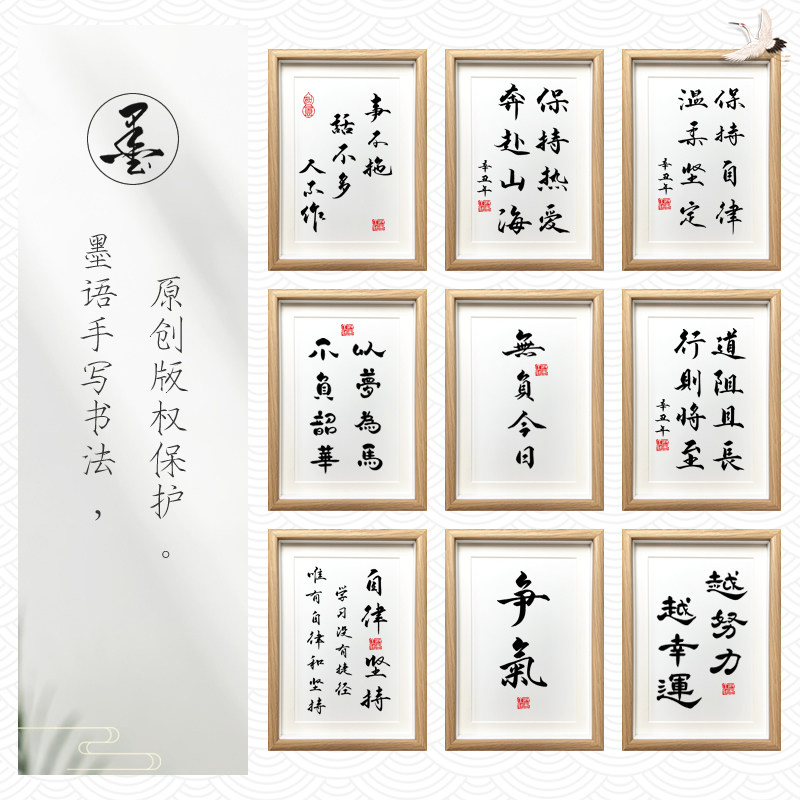 墨
墨语手写书法，
原创版权保护。
事不拖
話不多
人不作
保持热爱
奔赴山海
辛丑年
保持自律
温柔坚定
辛丑年
以夢為馬
不負韶華
無負今日
道阻且長
行則將至
辛丑年
自律坚持
学习没有捷径
唯有自律和坚持
爭氣
越努力
越幸運